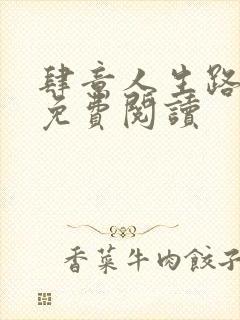 肆意人生路
免費閱讀
香菜牛肉餃子